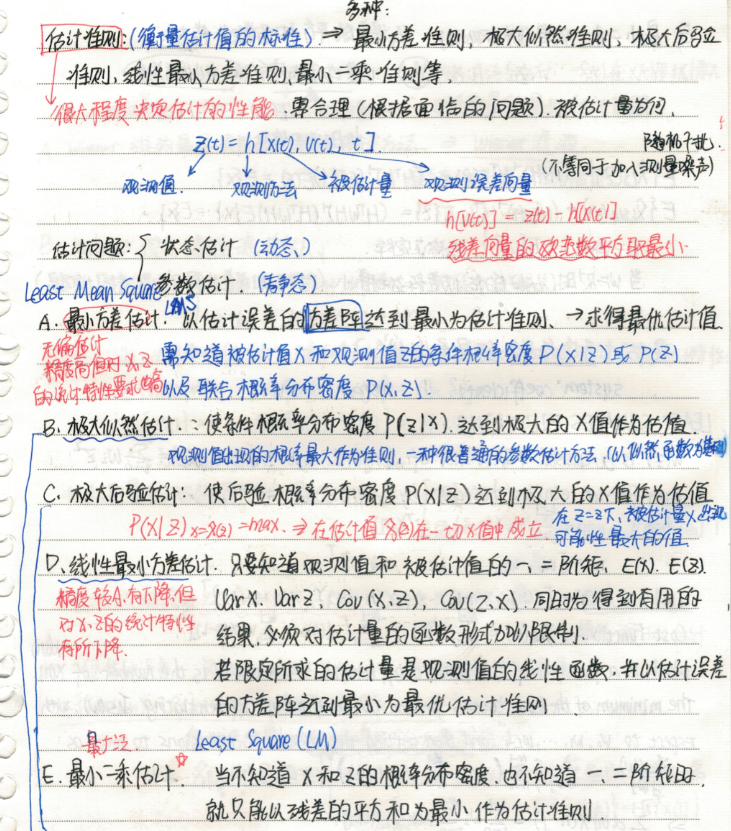 多种:
估计准则:(衡量估计值的标准) ⇒ 最小方差准则, 极大似然准则, 极大后验
准则, 线性最小方差准则, 最小二乘准则等.
很大程度决定估计的性能. 要合理(根据面临的问题). 被估计量为何,
z(t) = h[x(t), v(t), t].
随机干扰.
(不等同于加入测量噪声)
观测值. 观测方法 被估计量 观测误差向量
h[v(t)] = z(t) - h[x(t)]
残差向量的欧范数平方取最小.
估计问题: { 状态估计 (动态)
参数估计. (静态)
Least Mean Square
LMS
A. 最小方差估计: 以估计误差的方差阵达到最小为估计准则. → 求得最优估计值.
无偏估计
精度高但对x, z
的统计特性要求也高
需知道被估计值X和观测值Z的条件概率密度 P(X|Z) 或 P(Z)
以及联合概率分布密度 P(X, Z).
B. 极大似然估计: 使条件概率分布密度 P(Z|X) 达到极大的X值作为估值.
观测值出现的概率最大作为准则, 一种很普通的参数估计方法, 以似然函数为准则
C. 极大后验估计: 使后验概率分布密度 P(X|Z) 达到极大的X值作为估值
P(X|Z) x=x̂(z) = max. ⇒ 在估计值 x̂(z) 在一切X值中成立.
在Z=z下, 被估计量x出现
可能性最大的值
D. 线性最小方差估计. 只要知道观测值和被估计值的一、二阶矩, E(X). E(Z).
精度较A.有下降, 但
对x, z的统计特性
有所下降.
Var X. Var Z, Cov(X,Z), Cov(Z,X). 同时为得到有用的
结果, 必须对估计量的函数形式加以限制.
若限定所求的估计量是观测值的线性函数, 并以估计误差
的方差阵达到最小为最优估计准则.
Least Square (LM)
E. 最小二乘估计: 当不知道X和Z的概率分布密度, 也不知道一、二阶矩时,
就只能以残差的平方和为最小作为估计准则